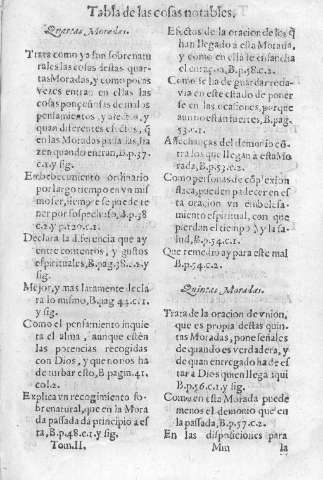 Tabla de las cosas notables.
Quartas Moradas.
Trata como ya son sobrenatu
rales las cosas destas quar-
tas Moradas, y como pocas
vezes entran en ellas las
cosas ponçoñosas de malos
pensamientos, y afectos, y
quan diferentes efectos, q̃
en las Moradas passadas, ha-
zen quando entran, B.p.37.
c.1. y sig.
Embebecimiento ordinario
por largo tiempo en vn mis
mo ser, tieme, y se puede te
ner por sospechoso, B.p.38
c.2. y p.120.c.1.
Declara la diferencia que ay
entre contentos, y gustos
espirituales, B.pag.38.c.2. y
sig.
Mejor, y mas largamente decla
ra lo mismo, B.pag.43.c.1.
y sig.
Como el pensamiento inquie
ta el alma, aunque estèn
las potencias recogidas
con Dios, y que no nos ha
de turbar esto, B pagin.41.
col.2.
Explica vn recogimiento so-
brenatural, que en la Mora
da passada da principio a es
ta, B.p.48.c.1. y sig.
Tom.II.
Efectos de la oracion de los q̃
han llegado a esta Morada,
y como en ella se ensancha
el coraçon, B.p.58.c.2.
Como se ha de guardar toda-
via en este estado de poner
se en las ocasiones, porque
aun no estan fuertes, B.pag.
53.c.1.
Assechanças del demonio cõ-
tra los que llegan a esta Mo
rada, B.p.53.c.2.
Como personas de cõplexion
flaca, pueden padecer en es
ta oracion vn embelesa-
miento espiritual, con que
pierdan el tiempo, y la sa-
lud, B.p.54.c.1.
Que remedio ay para este mal
B.p.54.c.2.
Quintas Moradas.
Trata de la oracion de vnion,
que es propia destas quin-
tas Moradas, pone señales
de quando es verdadera, y
de quan entregado ha de es
tar a Dios quien llega aqui
B.p.56.c.1. y sig.
Como en esta Morada puede
menos el demonio que en
la passada, B.p.57.c.2.
En las disposiciones para
Mm la